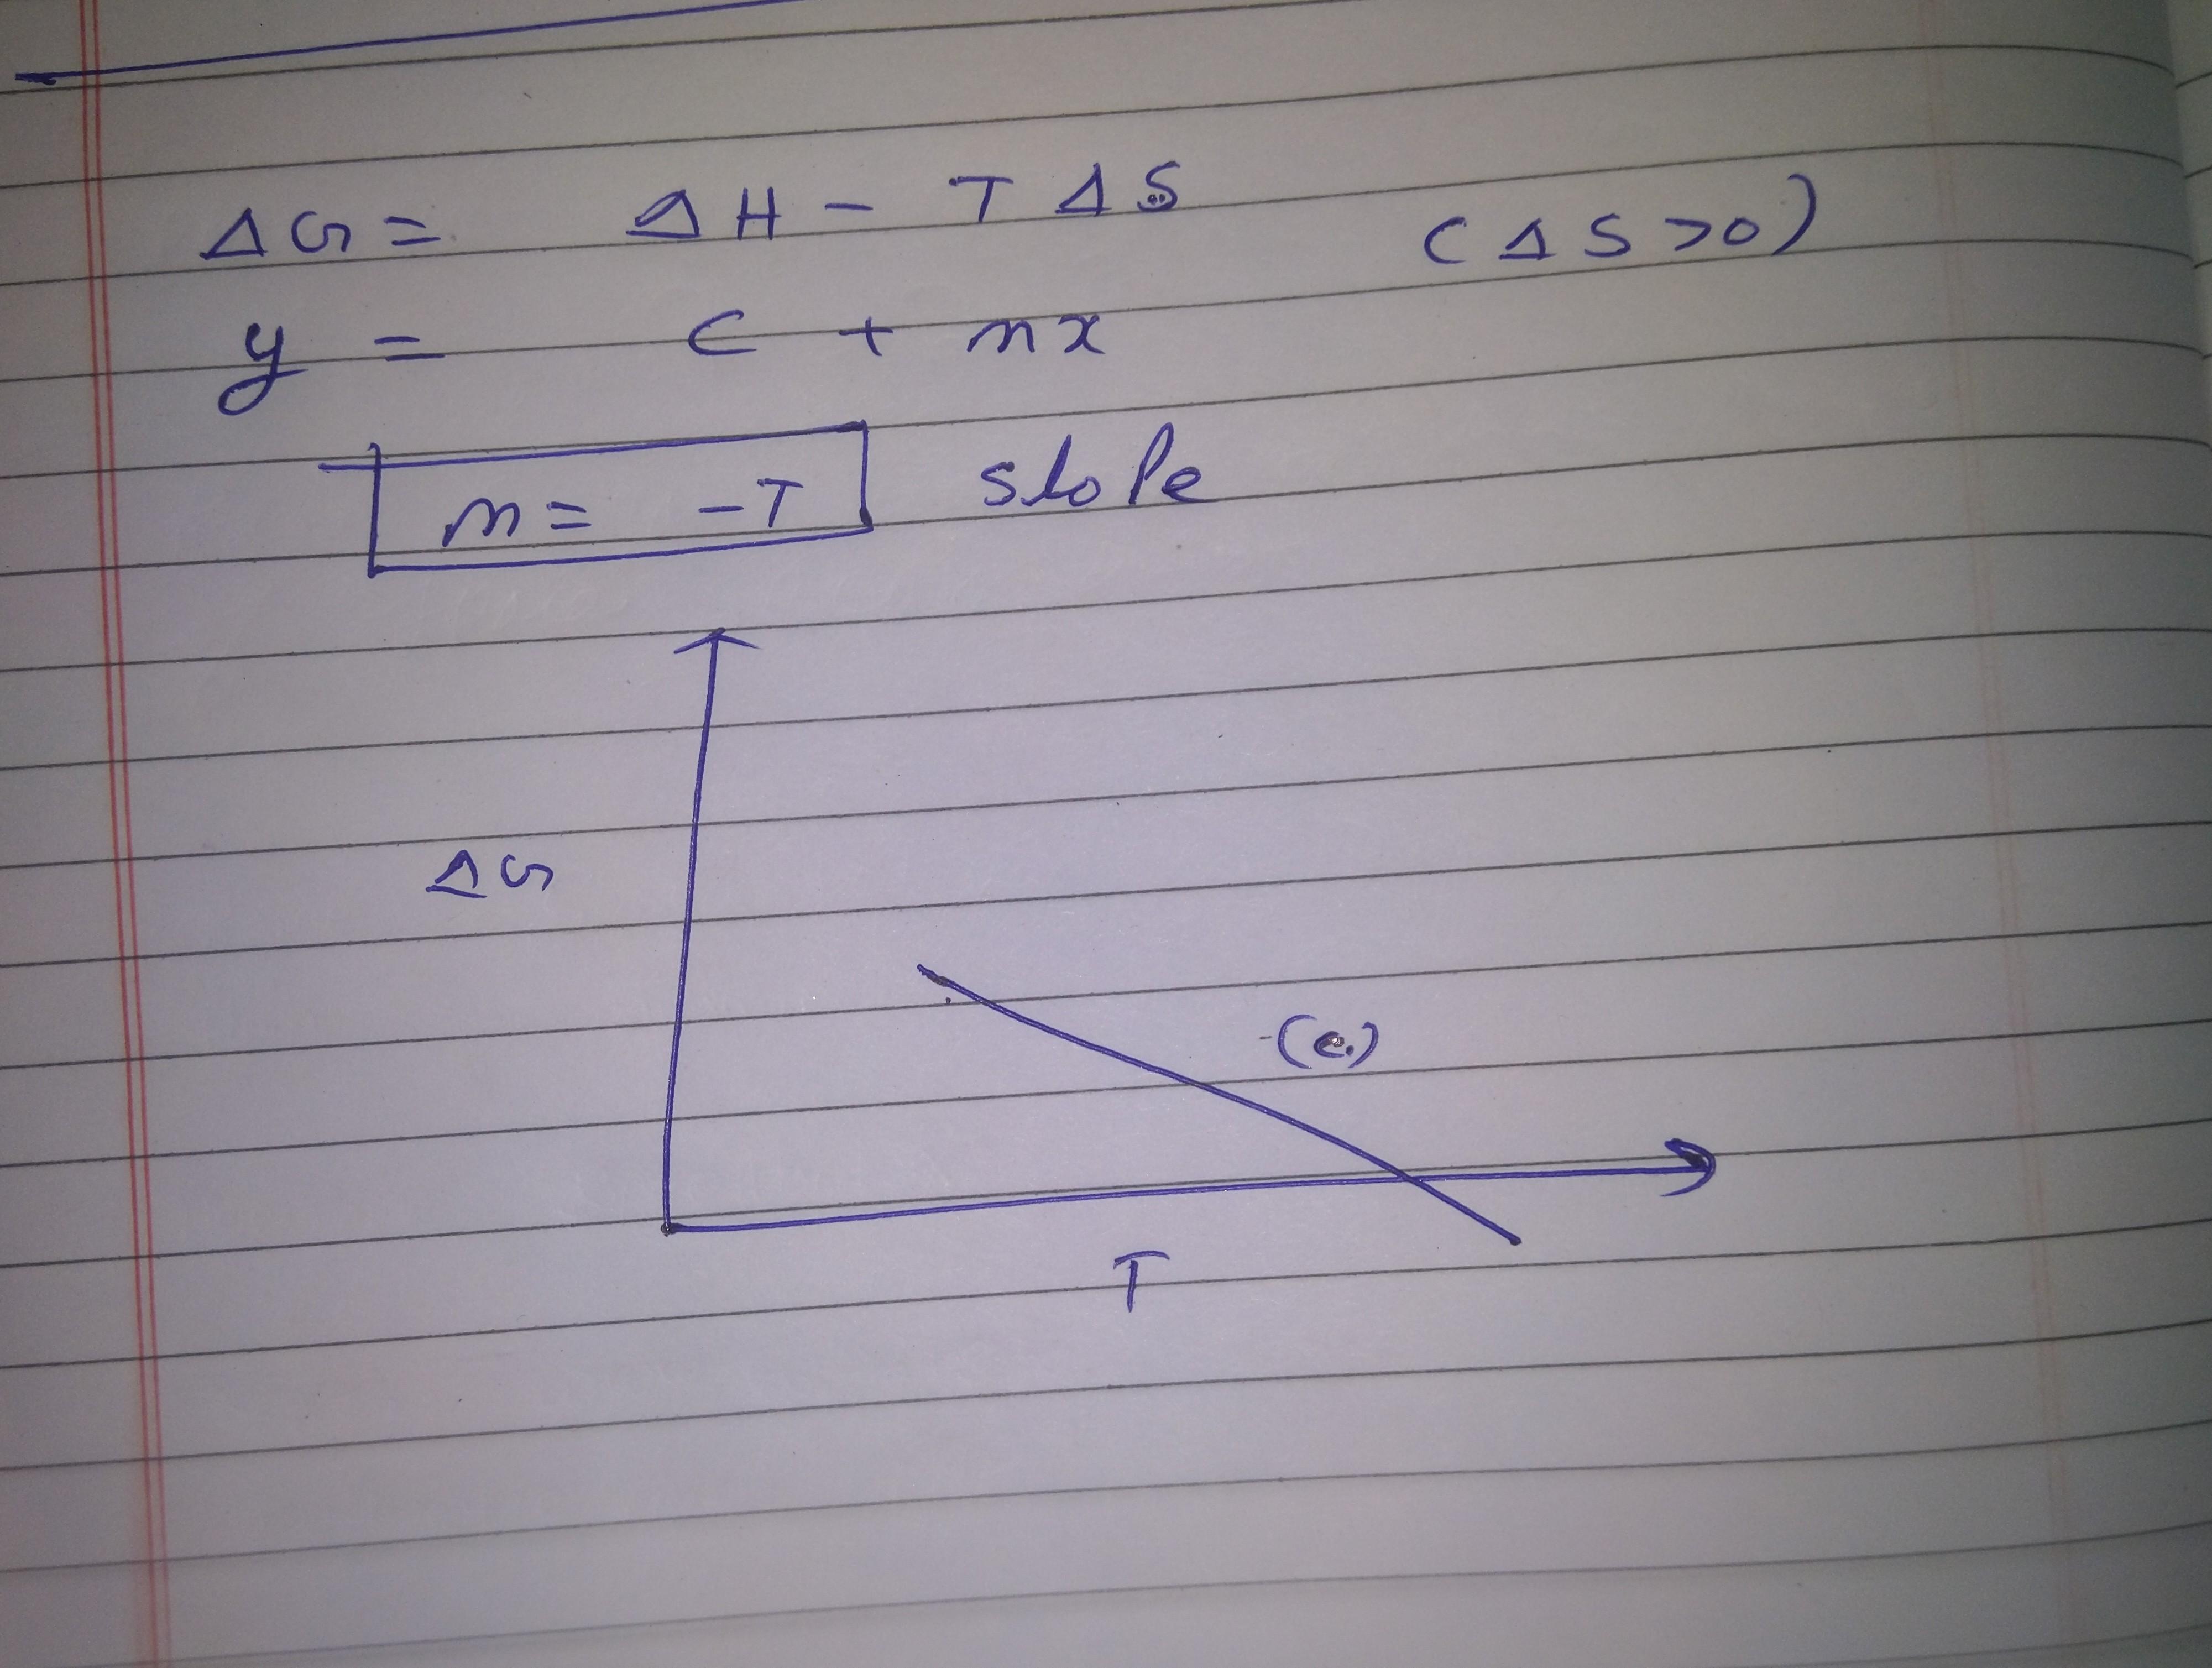 ΔG = ΔH - TΔS (ΔS>0)
y = c + mx
m = -T slope
ΔG
(c.)
T